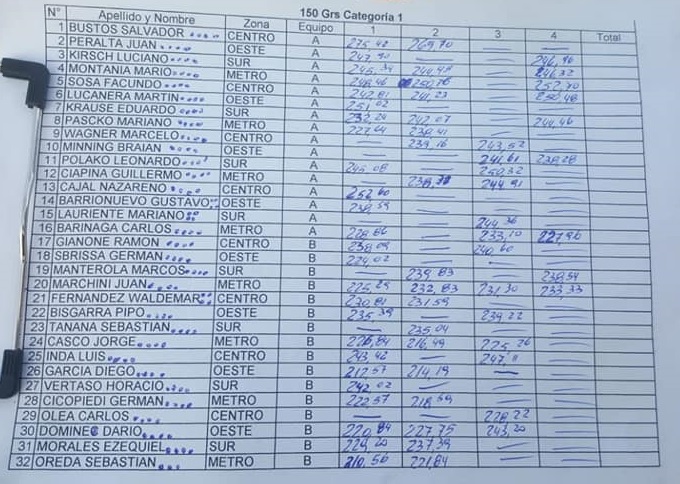 150 Grs Categoría 1
N° Apellido y Nombre Zona Equipo 1 2 3 4 Total
1 BUSTOS SALVADOR CENTRO A 275,42 269,70 — —
2 PERALTA JUAN OESTE A 247,90 — — 246,96
3 KIRSCH LUCIANO SUR A 245,34 244,48 — 246,32
4 MONTANIA MARIO METRO A 248,46 250,78 — 252,70
5 SOSA FACUNDO CENTRO A 242,81 241,23 — 250,48
6 LUCANERA MARTIN OESTE A 251,02 — — —
7 KRAUSE EDUARDO SUR A 232,24 242,07 — 244,46
8 PASCKO MARIANO METRO A 227,04 238,41 — —
9 WAGNER MARCELO CENTRO A — 239,16 243,52 —
10 MINNING BRAIAN OESTE A — — 241,61 238,28
11 POLAKO LEONARDO SUR A 245,08 — 250,32 —
12 CIAPINA GUILLERMO METRO A — 244,91 —
13 CAJAL NAZARENO CENTRO A 252,60 — — —
14 BARRIONUEVO GUSTAVO OESTE A 238,59 — — —
15 LAURIENTE MARIANO SUR A — — 244,36 —
16 BARINAGA CARLOS METRO A 228,86 — 233,10 227,96
17 GIANONE RAMON CENTRO B 238,09 — 240,60 —
18 SBRISSA GERMAN OESTE B 224,02 — — —
19 MANTEROLA MARCOS SUR B — 239,83 — 238,54
20 MARCHINI JUAN METRO B 225,25 232,83 231,30 233,33
21 FERNANDEZ WALDEMAR CENTRO B 230,81 231,59 — —
22 BISGARRA PIPO OESTE B 235,39 — 239,22 —
23 TANANA SEBASTIAN SUR B — 235,04 — —
24 CASCO JORGE METRO B 226,84 216,49 225,26 —
25 INDA LUIS CENTRO B 243,42 — —
26 GARCIA DIEGO OESTE B 217,57 214,19 — —
27 VERTASO HORACIO SUR B 242,02 — — —
28 CICOPIEDI GERMAN METRO B 222,57 218,59 — —
29 OLEA CARLOS CENTRO B — — 228,22 —
30 DOMINEC DARIO OESTE B 220,84 227,75 243,20 —
31 MORALES EZEQUIEL SUR B 229,20 237,39 — —
32 OREDA SEBASTIAN METRO B 210,56 221,84 — —